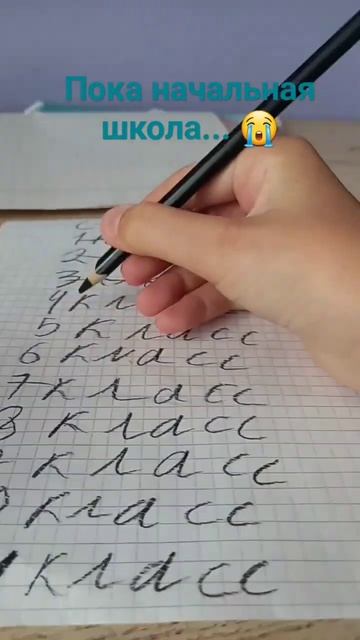 Пока начальная
школа... 😭
4 кл
5 класс
6 класс
7 класс
8 класс
класс
класс
класс